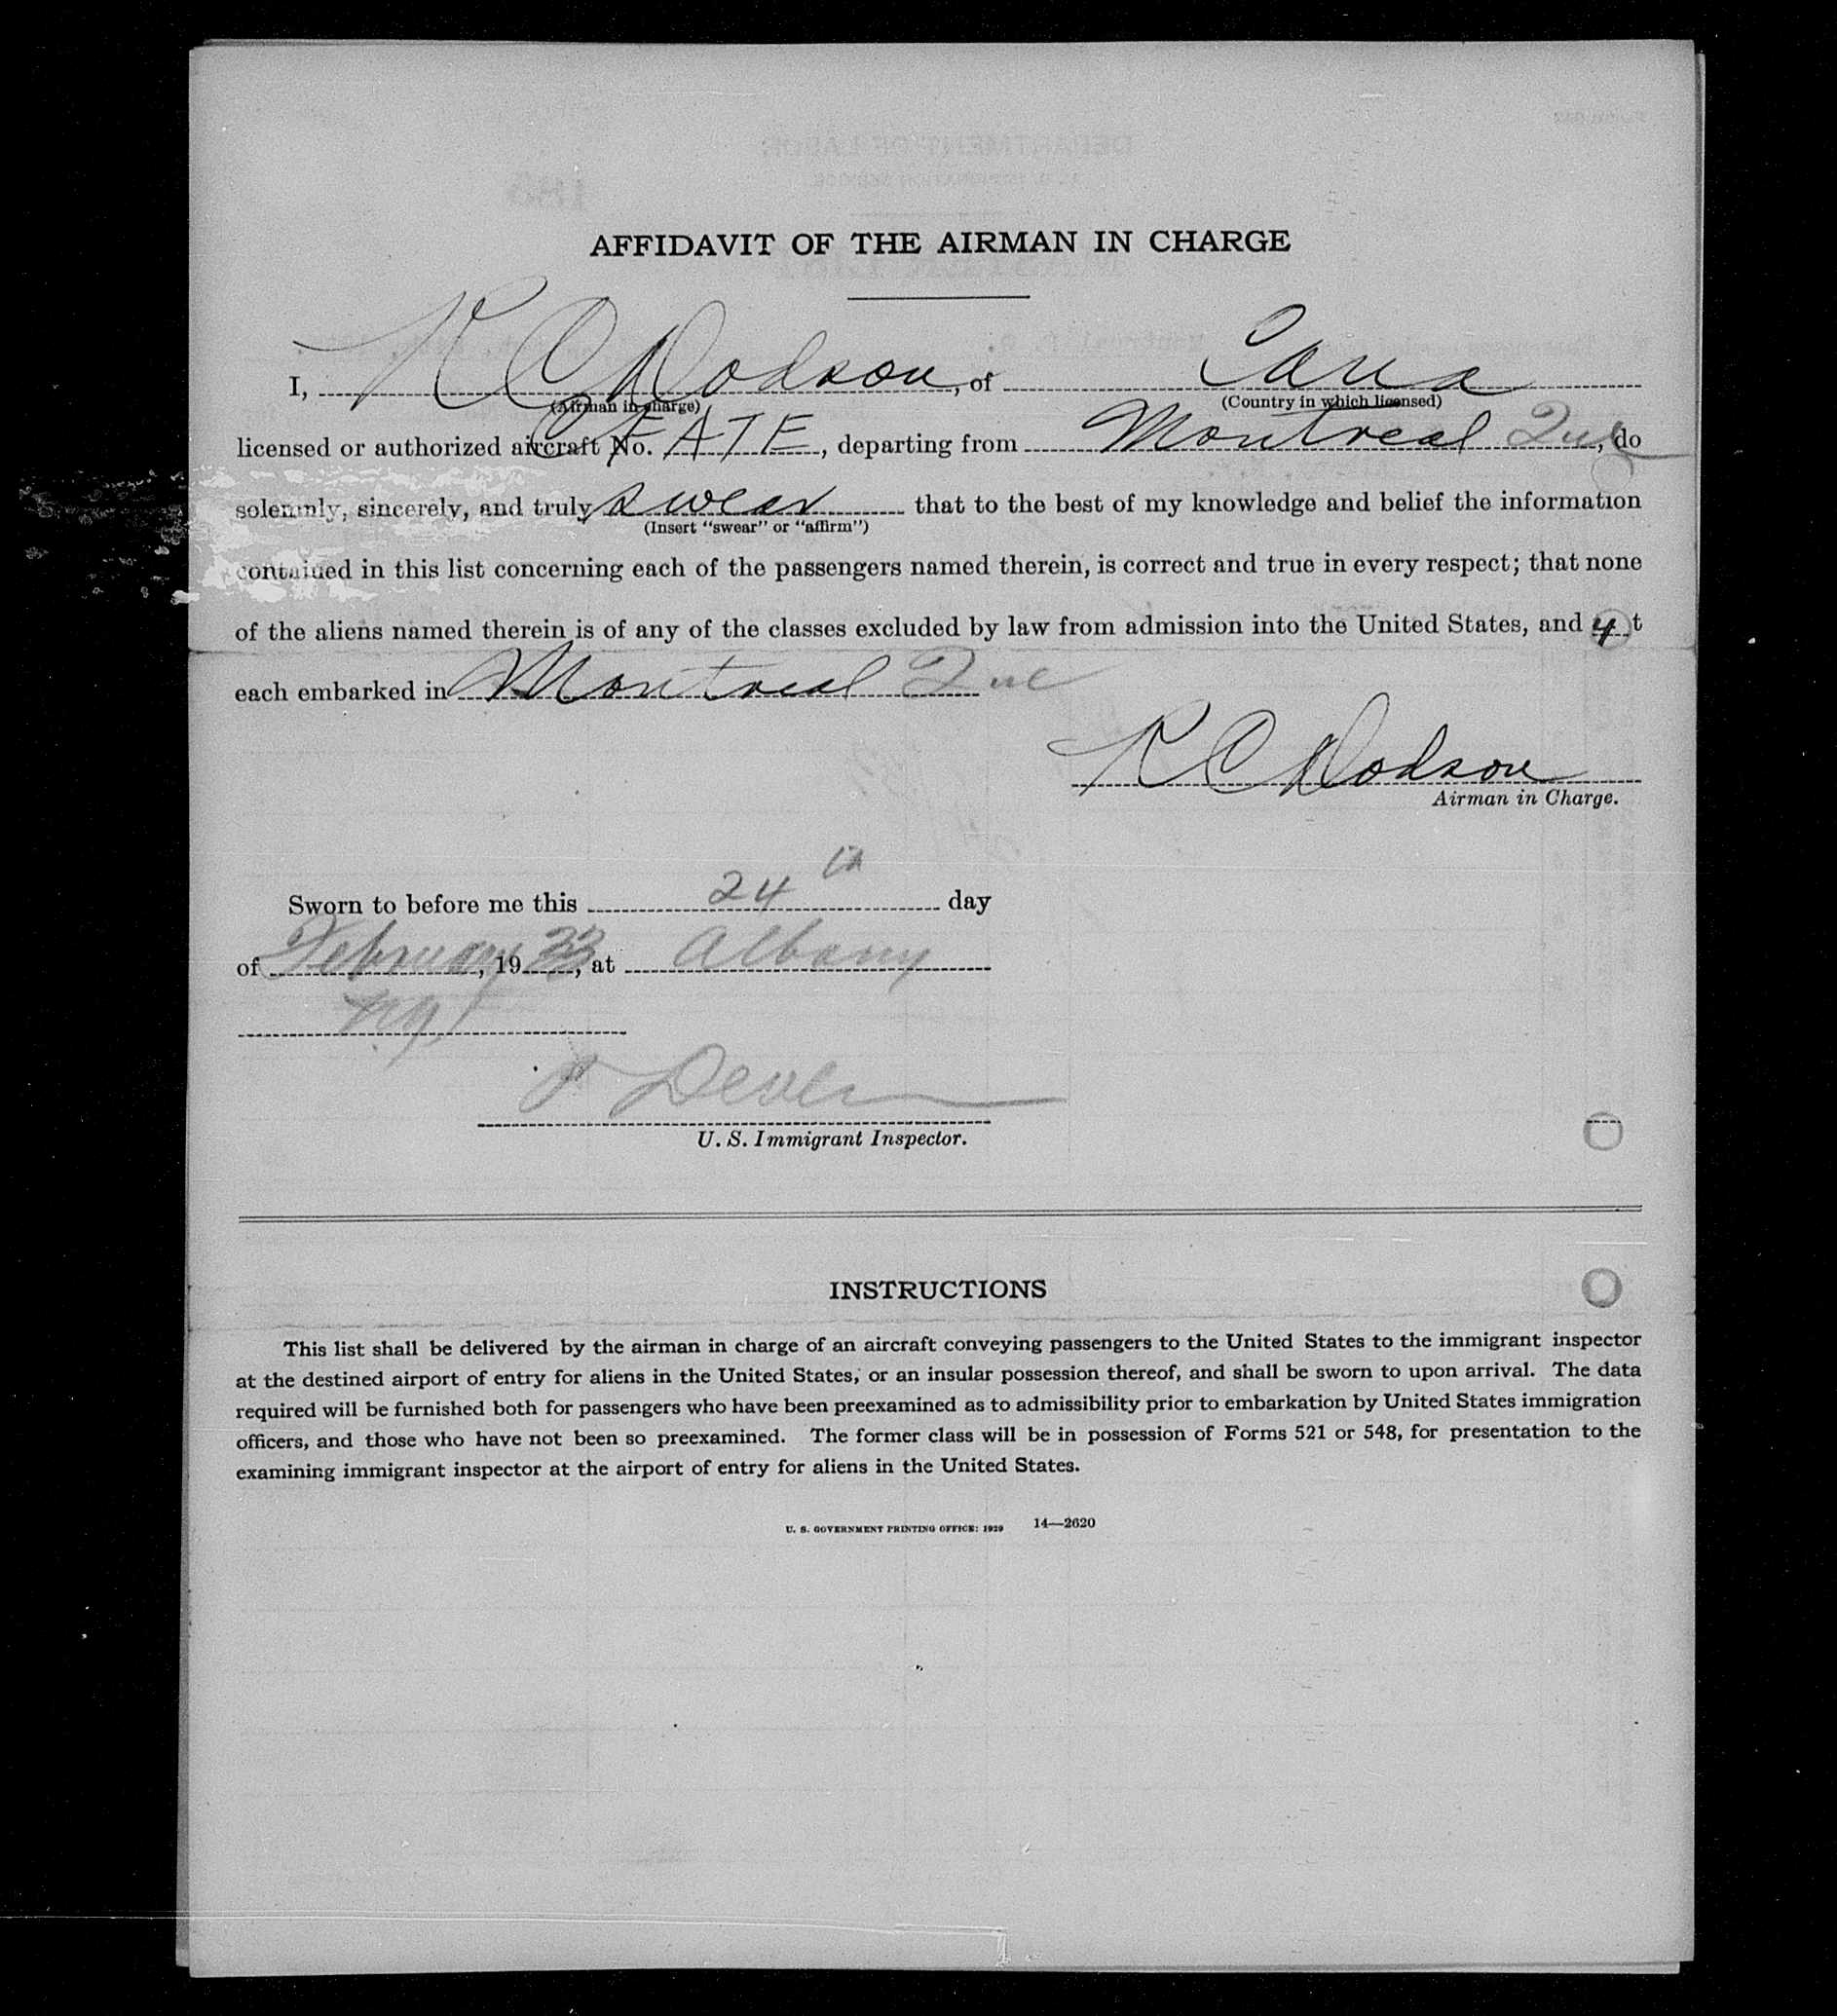 AFFIDAVIT OF THE AIRMAN IN CHARGE
I, K C Dodson, of Cana
(Airman in charge) (Country in which licensed)
licensed or authorized aircraft No. CFATE, departing from Montreal Que, do
solemnly, sincerely, and truly swear that to the best of my knowledge and belief the information
(Insert "swear" or "affirm")
contained in this list concerning each of the passengers named therein, is correct and true in every respect; that none
of the aliens named therein is of any of the classes excluded by law from admission into the United States, and 4 t
each embarked in Montreal Que
K C Dodson
Airman in Charge.
Sworn to before me this 24th day
of February, 1933, at Albany
N.Y.
U. S. Immigrant Inspector.
INSTRUCTIONS
This list shall be delivered by the airman in charge of an aircraft conveying passengers to the United States to the immigrant inspector
at the destined airport of entry for aliens in the United States, or an insular possession thereof, and shall be sworn to upon arrival. The data
required will be furnished both for passengers who have been preexamined as to admissibility prior to embarkation by United States immigration
officers, and those who have not been so preexamined. The former class will be in possession of Forms 521 or 548, for presentation to the
examining immigrant inspector at the airport of entry for aliens in the United States.
U. S. GOVERNMENT PRINTING OFFICE: 1929 14—2620